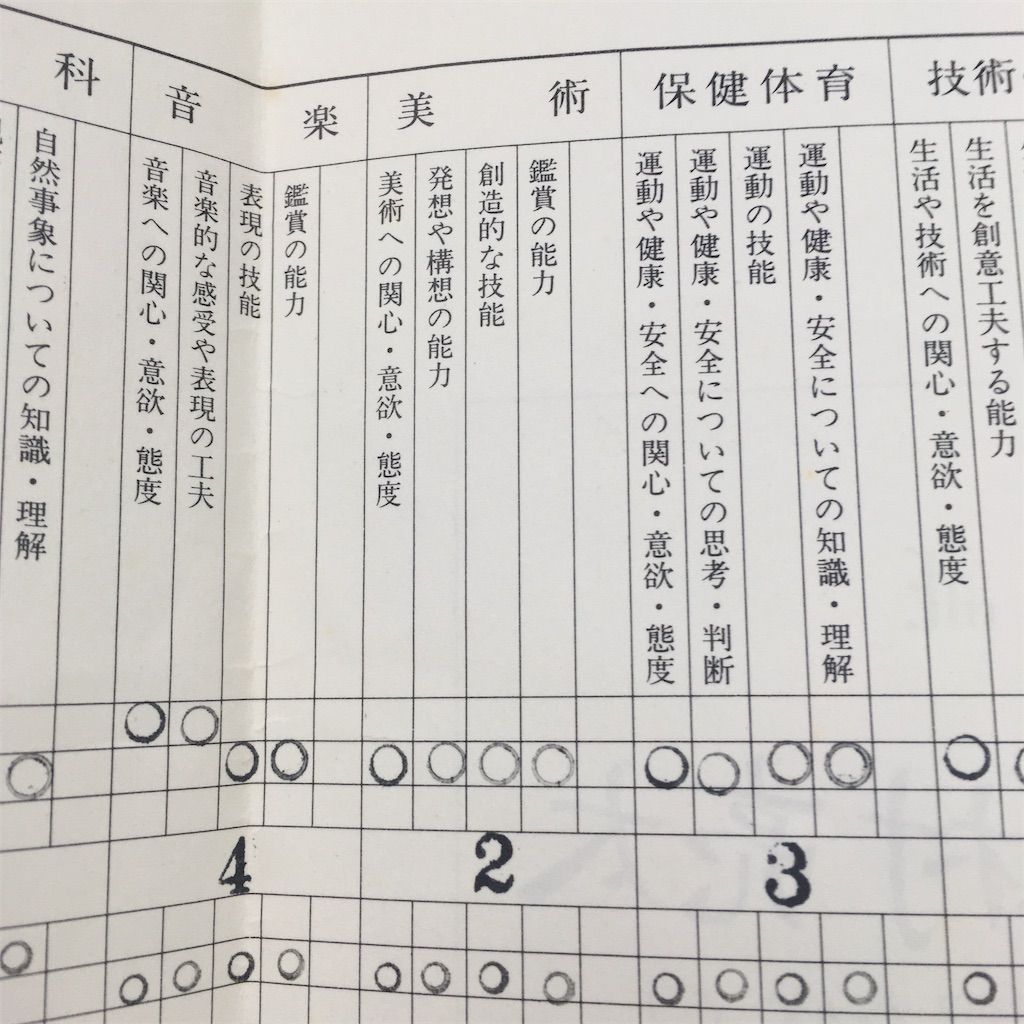 科
自然事象についての知識・理解
音 楽
音楽への関心・意欲・態度
音楽的な感受や表現の工夫
表現の技能
鑑賞の能力
美 術
美術への関心・意欲・態度
発想や構想の能力
創造的な技能
鑑賞の能力
保健体育
運動や健康・安全への関心・意欲・態度
運動や健康・安全についての思考・判断
運動の技能
運動や健康・安全についての知識・理解
技術・
生活や技術への関心・意欲・態度
生活を創意工夫する能力
4
2
3